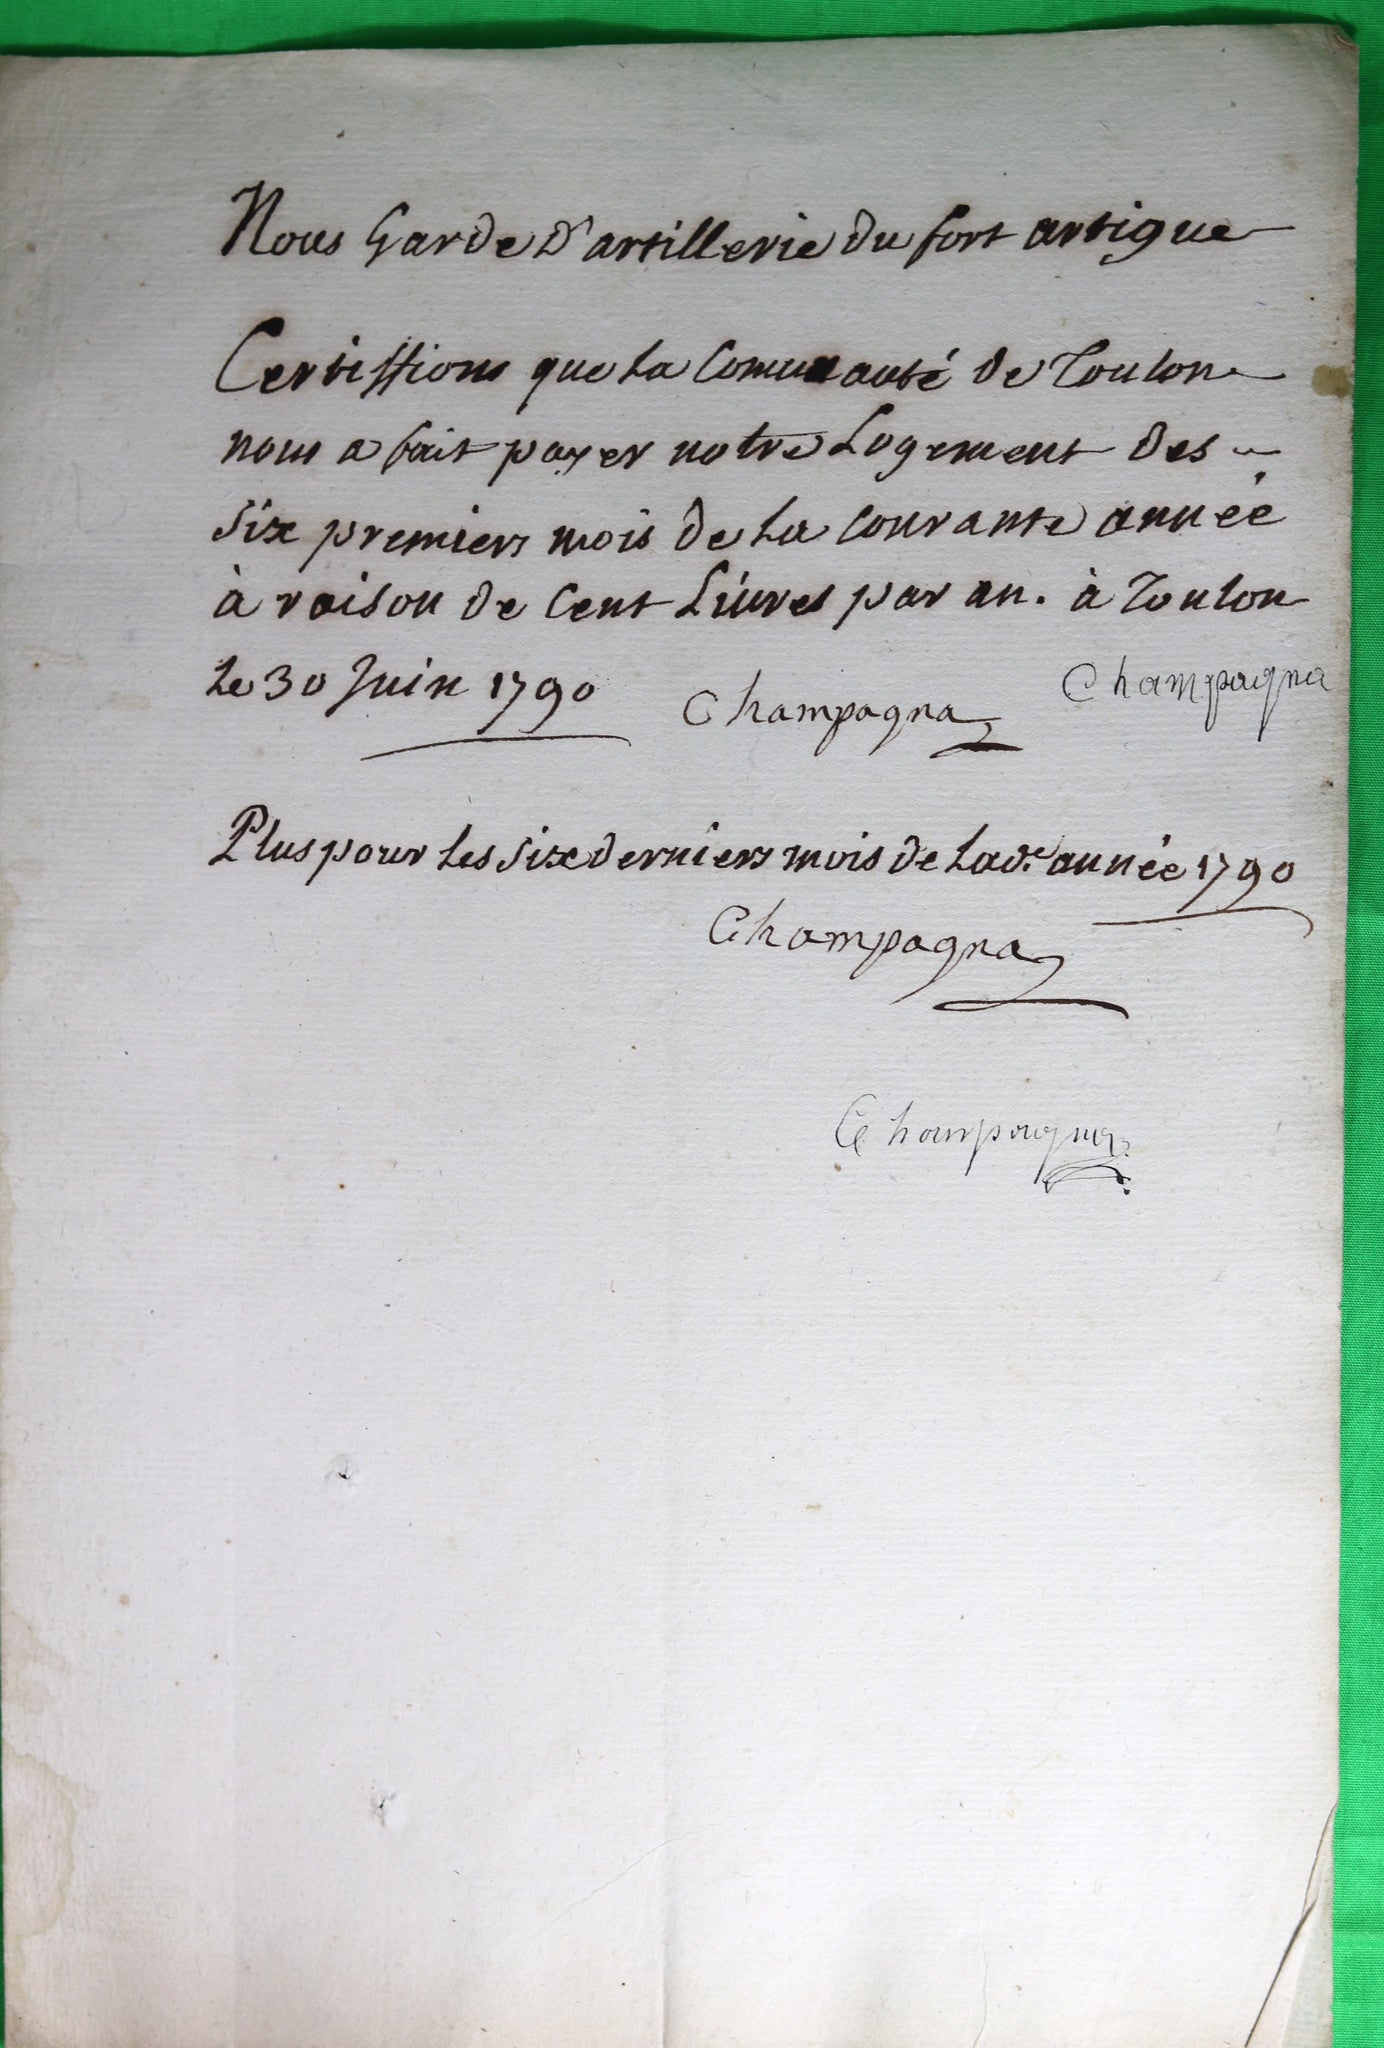 Nous Garde D'artillerie du fort artigue
Certiffions que La Comunauté de Toulon
nous a fait payer notre Logement des
six premiers mois de La Courante année
à raison de Cent Livres par an. à Toulon
Le 30 Juin 1790 Champagna Champagna
Plus pour Les six derniers mois de Lad.e année 1790
Champagna
Champagna